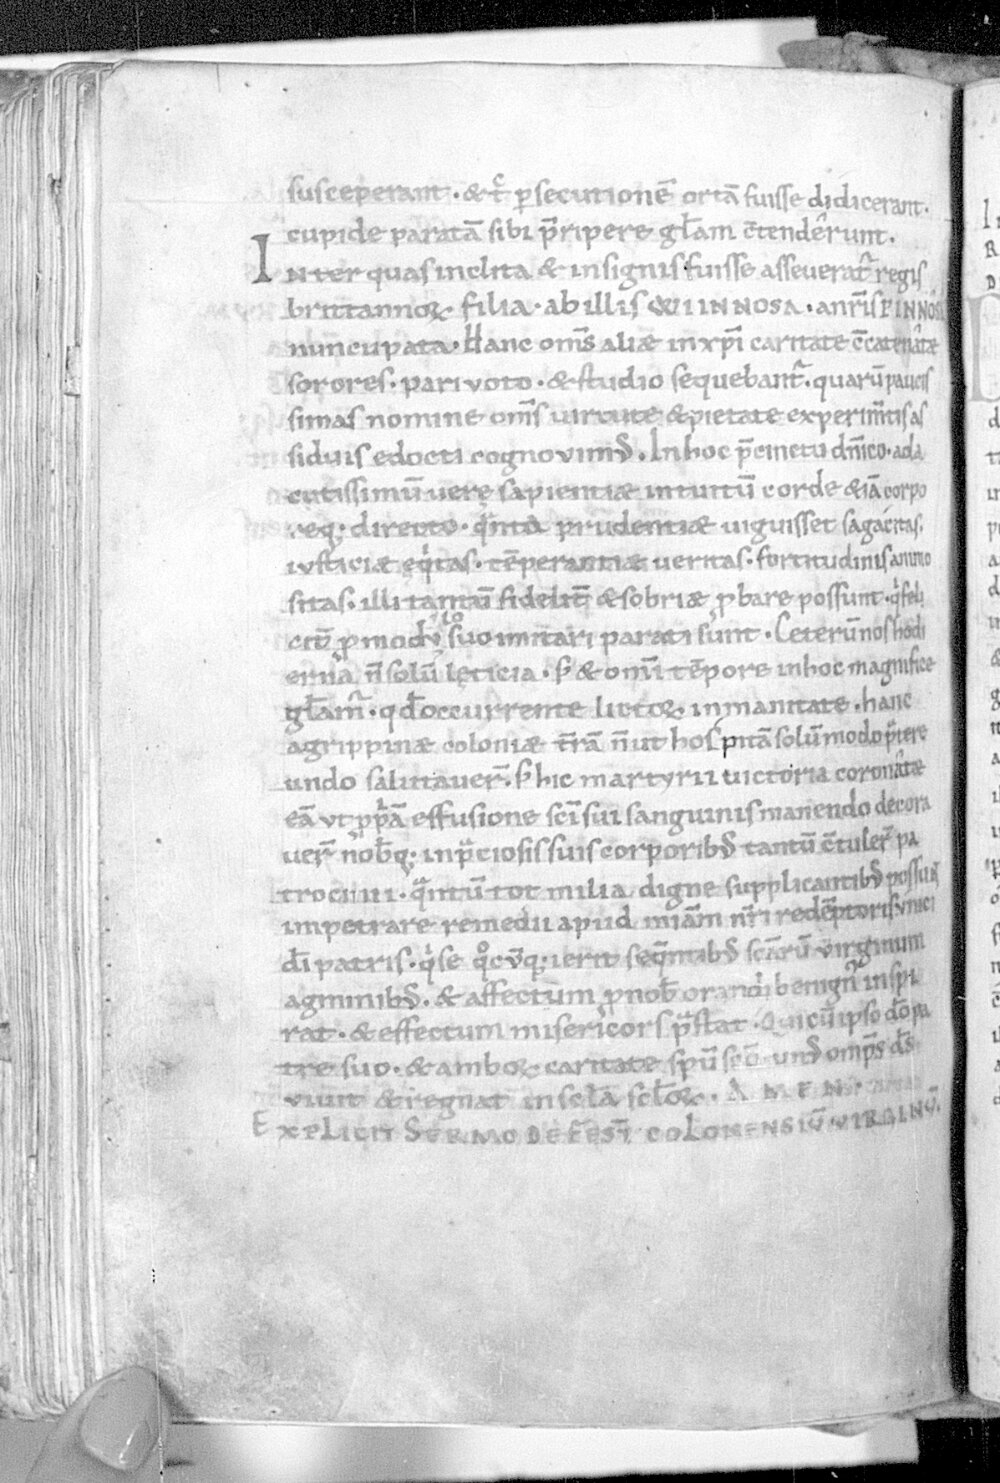 susceperant · &t̄ꝰ ꝑsecutionē ortā fuisse didicerant ·
cupide paratā sibi p̄ripere gl̄am c̄tender̄unt .
INter quas inclita & insignis fuisse asseverat̄ regis
brittannoꝝ filia · ab illis WIINNOSA · anr̄is PINNOSA
nuncupata · Hanc om̄s aliæ in xp̄i caritate c̄catenatæ
sorores · pari voto · & studio sequebant̄ · quarū paucis
simas nomine om̄s virtute & pietate experim̄tis as
siduis edocti cognovim᷒ . In hoc p̄cinctu dn̄ico · ad a
cutissimū verę sapientiæ intuitū corde & iā corpo
req; directo · q̄nta prudentiæ viguisset sagacitas ·
iusticiæ eq̇tas · tēperantiæ veritas · fortitudinis animo
sitas · illi tantū fidelit̄ & sobriæ ꝓbare possunt · q̇ feli
cit̄ ꝓ modulo suo imitari parati sunt · Ceterū nos hodi
erna n̄ solū lęticia · s; & om̄i tēpore in hoc magnifice
gl̄am̄ · qd̄ occurrente lictoꝝ inmanitate · hanc
agrippinæ coloniæ t̄rā n̄ ut hospitā solūmodo p̄tere
undo salutaver̄ · s; hic martyrii victoria coronatæ
eā ut ꝓpriā effusione sc̄i sui sanguinis manendo decora
uer̄ nob̄q; · in p̄ciosis suis corporib᷒ tantū c̄tuler̄ pa
trocinii · q̄ntū tot milia digne supplicantib᷒ possunt
impetrare remedii apud miām nr̄i redēptoris unici
dī patris · q̇ se q̊cūq; · ierit seq̄ntib᷒ scārū virginum
agminib᷒ . & affectum ꝓ nob̄ orandi benign᷒ inspi
rat · & effectum misericors p̄stat · Qui cū ipso dō pa
tre suo · & amboꝝ caritate sp̄u sc̄o · un᷒ omp̄s d̄s
vivit & regnat in sc̄la sc̄loꝝ . AMEN ·
EXPLICIT SERMO DE FEST̄ COLONENSIŪ VIRGINŪ .